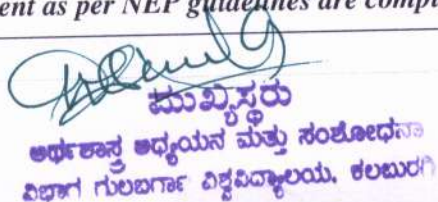 ent as per NEP guidelines are compl
ಮುಖ್ಯಸ್ಥರು
ಅರ್ಥಶಾಸ್ತ್ರ ಅಧ್ಯಯನ ಮತ್ತು ಸಂಶೋಧನಾ
ವಿಭಾಗ ಗುಲಬರ್ಗಾ ವಿಶ್ವವಿದ್ಯಾಲಯ, ಕಲಬುರಗಿ